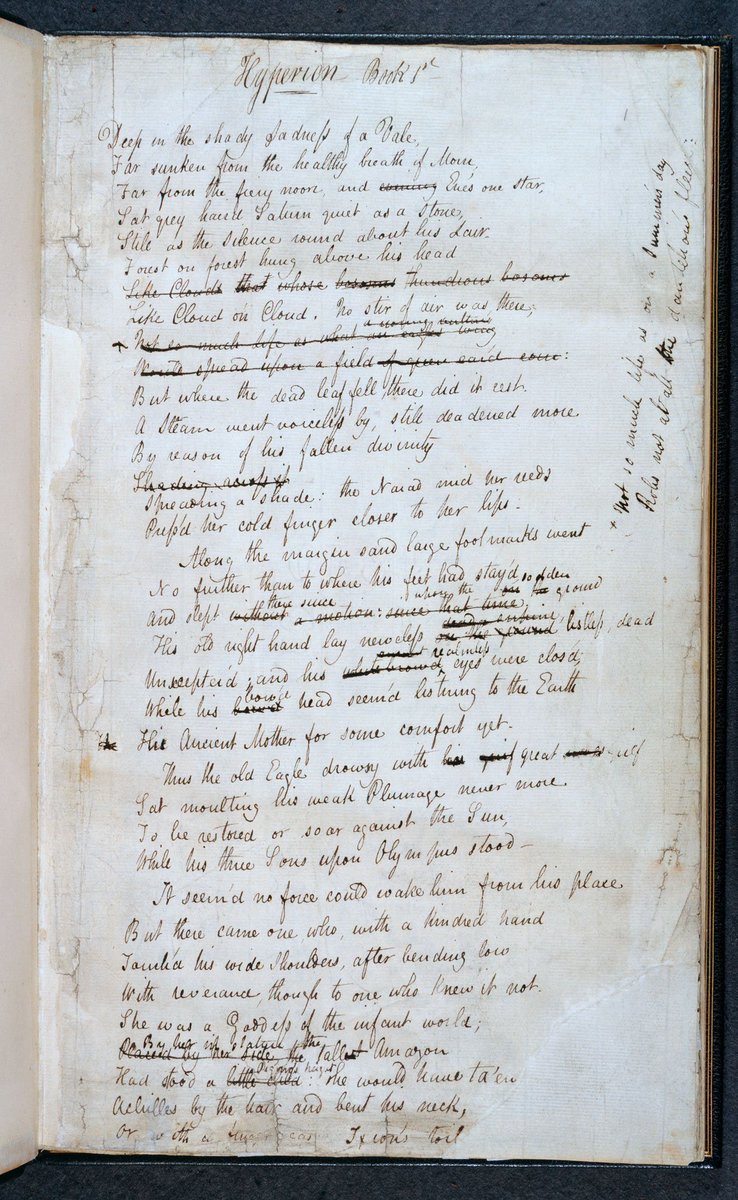 Hyperion Book 1st
Deep in the shady sadness of a Vale,
Far sunken from the healthy breath of Morn,
Far from the fiery noon, and evening Eve's one star,
Sat grey hair'd Saturn quiet as a stone,
Still as the silence round about his Lair.
Forest on forest hung above his head
Like Clouds that whose bosoms thundrous bosoms
Like Cloud on Cloud. No stir of air was there,
a young vulture's
Not so much life as what an eagle's wing
Would spread upon a field of green ear'd corn:
But where the dead leaf fell, there did it rest.
A Stream went voiceless by, still deadened more
By reason of his fallen divinity
Shading across it
Spreading a shade: the Naiad mid her reeds
Press'd her cold finger closer to her lips.
Along the margin sand large footmarks went
No further than to where his feet had stay'd
there since where the on sodden
And slept without a motion: since that time, the ground
His old right hand lay nerveless on the ground listless, dead
realmless
Unsceptered; and his white brow'd eyes were clos'd;
bow'd
While his head seem'd list'ning to the Earth
His Ancient Mother for some comfort yet.
Thus the old Eagle drowsy with his grief great grief
Sat moulting his weak Plumage never more
To be restored or soar against the Sun,
While his three Sons upon Olympus stood—
It seem'd no force could wake him from his place
But there came one who, with a kindred hand
Touch'd his wide Shoulders, after bending low
With reverence, though to one who knew it not.
She was a Goddess of the infant world;
By her in stature the
Placed by her side, the tallest Amazon
Pigmy's height
Had stood a little child: she would have ta'en
Achilles by the hair and bent his neck,
Or with a finger Ixion's toil
+ Not so much life as on a summer's day
Robs not at all the dandelion's fleece: